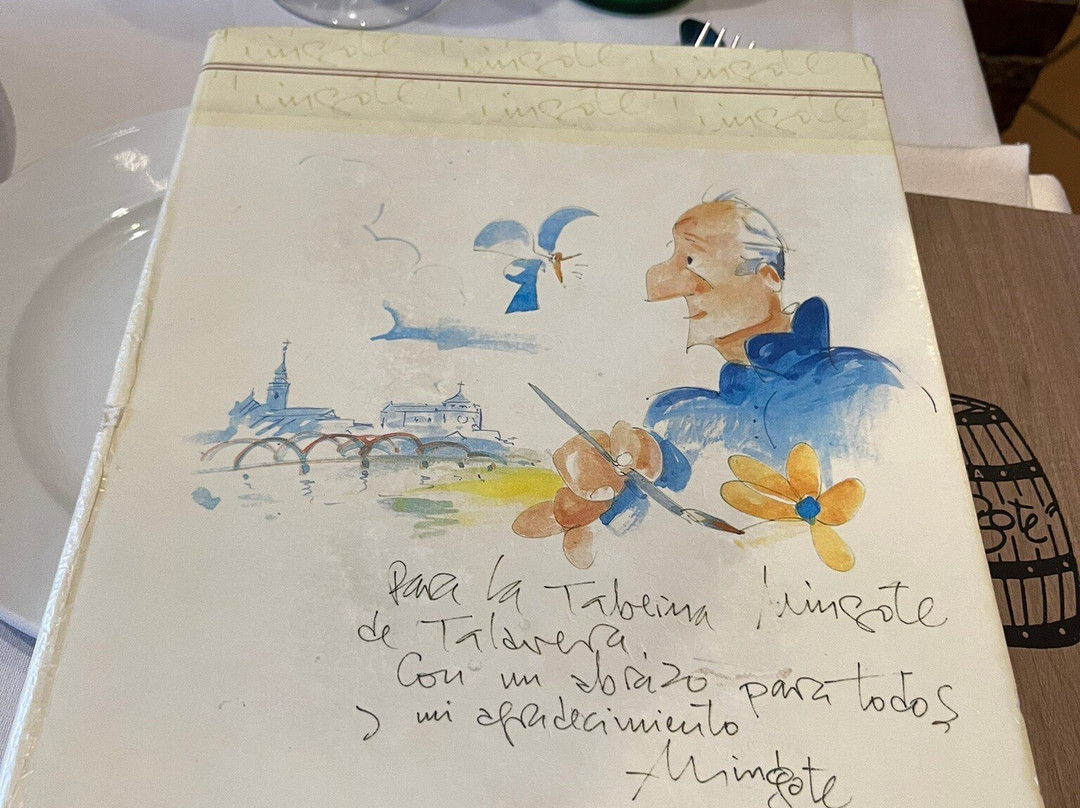 Mingote Mingote Mingote
Mingote Mingote Mingote
Para la Taberna Mingote
de Talavera.
Con un abrazo para todos
y mi agradecimiento
Mingote